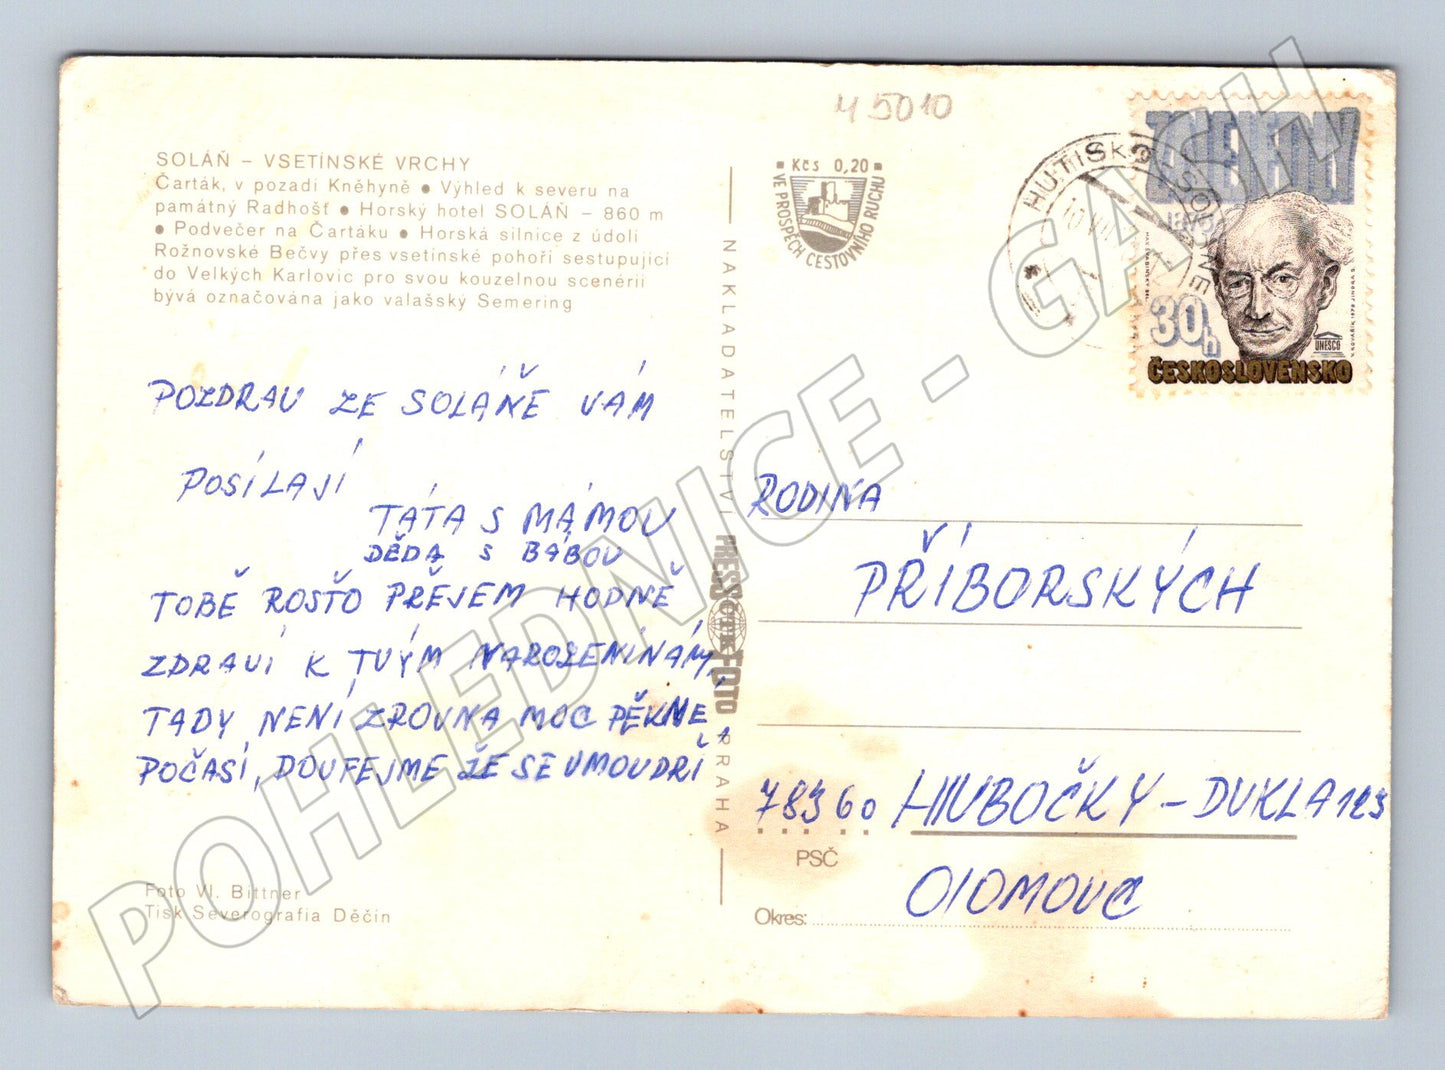 45010
SOLÁŇ – VSETÍNSKÉ VRCHY
Čarták, v pozadí Kněhyně ● Výhled k severu na
památný Radhošť ● Horský hotel SOLÁŇ – 860 m
● Podvečer na Čartáku ● Horská silnice z údolí
Rožnovské Bečvy přes vsetínské pohoří sestupující
do Velkých Karlovic pro svou kouzelnou scenérii
bývá označována jako valašský Semering
POZDRAV ZE SOLÁŇĚ VÁM
POSÍLAJÍ
TÁTA S MÁMOU
DĚDA S BÁBOU
TOBĚ ROSŤO PŘEJEM HODNĚ
ZDRAVÍ K TVÝM NAROZENINÁM,
TADY NENÍ ZROVNA MOC PĚKNE,
POČASÍ, DOUFEJME ŽE SE UMOUDŘÍ
Foto W. Bittner
Tisk Severografia Děčín
NAKLADATELSTVÍ PRESSFOTO PRAHA
ČTK
Kčs 0,20
VE PROSPĚCH CESTOVNÍHO RUCHU
HUTISKO-SOLANEC
10.VII
ZD.NEJEDLÝ
30h
UNESCO
ČESKOSLOVENSKO
RODINA
PŘÍBORSKÝCH
78360 HLUBOČKY – DUKLA 123
PSČ
OLOMOUC
Okres:
POHLEDNICE - GASH